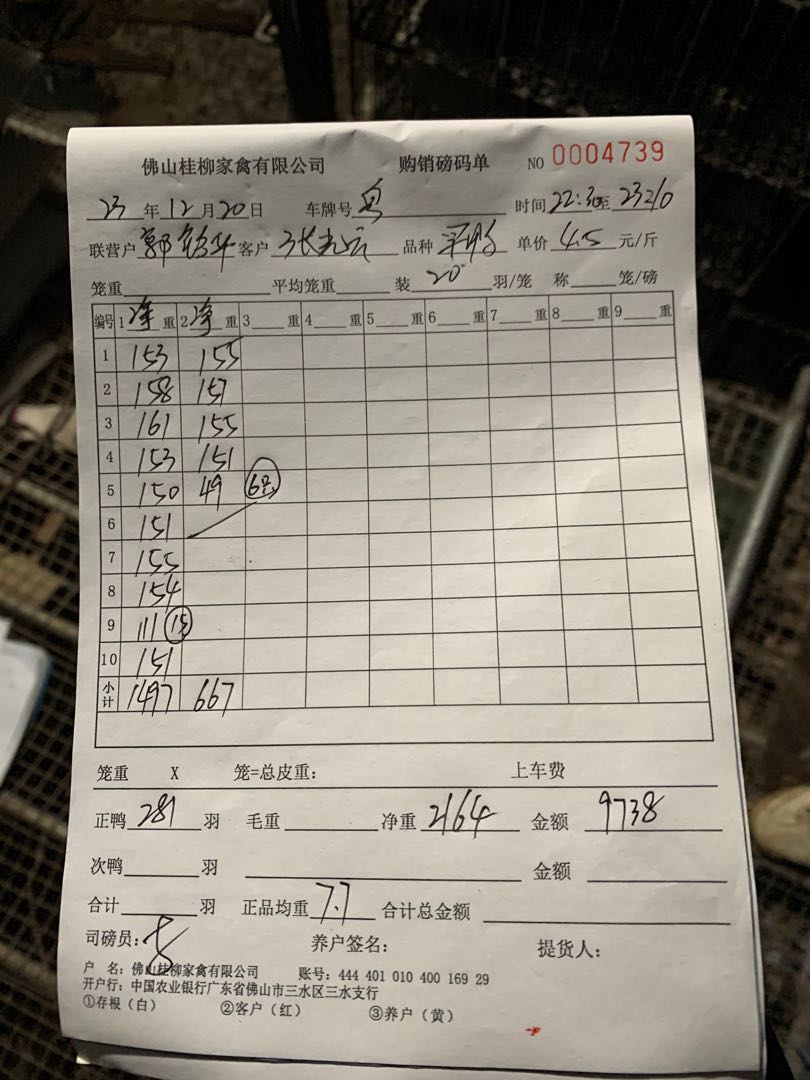 佛山桂柳家禽有限公司 购销磅码单 NO 0004739
23 年 12 月 20 日 车牌号 时间 22:30 至 2320
联营户 郭 华 客户 张 品种 单价 4.5 元/斤
笼重 平均笼重 装 20 羽/笼 称 笼/磅
编号 1 净 重 2 净 重 3 重 4 重 5 重 6 重 7 重 8 重 9 重
1 153 155
2 158 157
3 161 155
4 153 151
5 150 49 6只
6 151
7 155
8 154
9 111 15
10 151
小计 1497 667
笼重 X 笼=总皮重: 上车费
正鸭 281 羽 毛重 净重 2164 金额 9738
次鸭 羽 金额
合计 羽 正品均重 7.7 合计总金额
司磅员: 养户签名: 提货人:
户 名: 佛山桂柳家禽有限公司 账号: 444 401 010 400 169 29
开户行: 中国农业银行广东省佛山市三水区三水支行
①存根（白） ②客户（红） ③养户（黄）